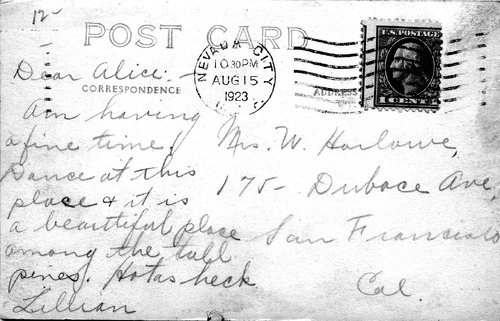 12-
POST CARD
NEVADA CITY
10 30 PM
AUG 15
1923
U.S. POSTAGE
1 CENT 1
CORRESPONDENCE
ADDRESS
Dear Alice:-
Am having
a fine time.
Dance at this
place & it is
a beautiful place
among the tall
pines. Hot as heck
Lillian
Mrs. W. Harlowe,
175- Duboce Ave,
San Francisco
Cal.